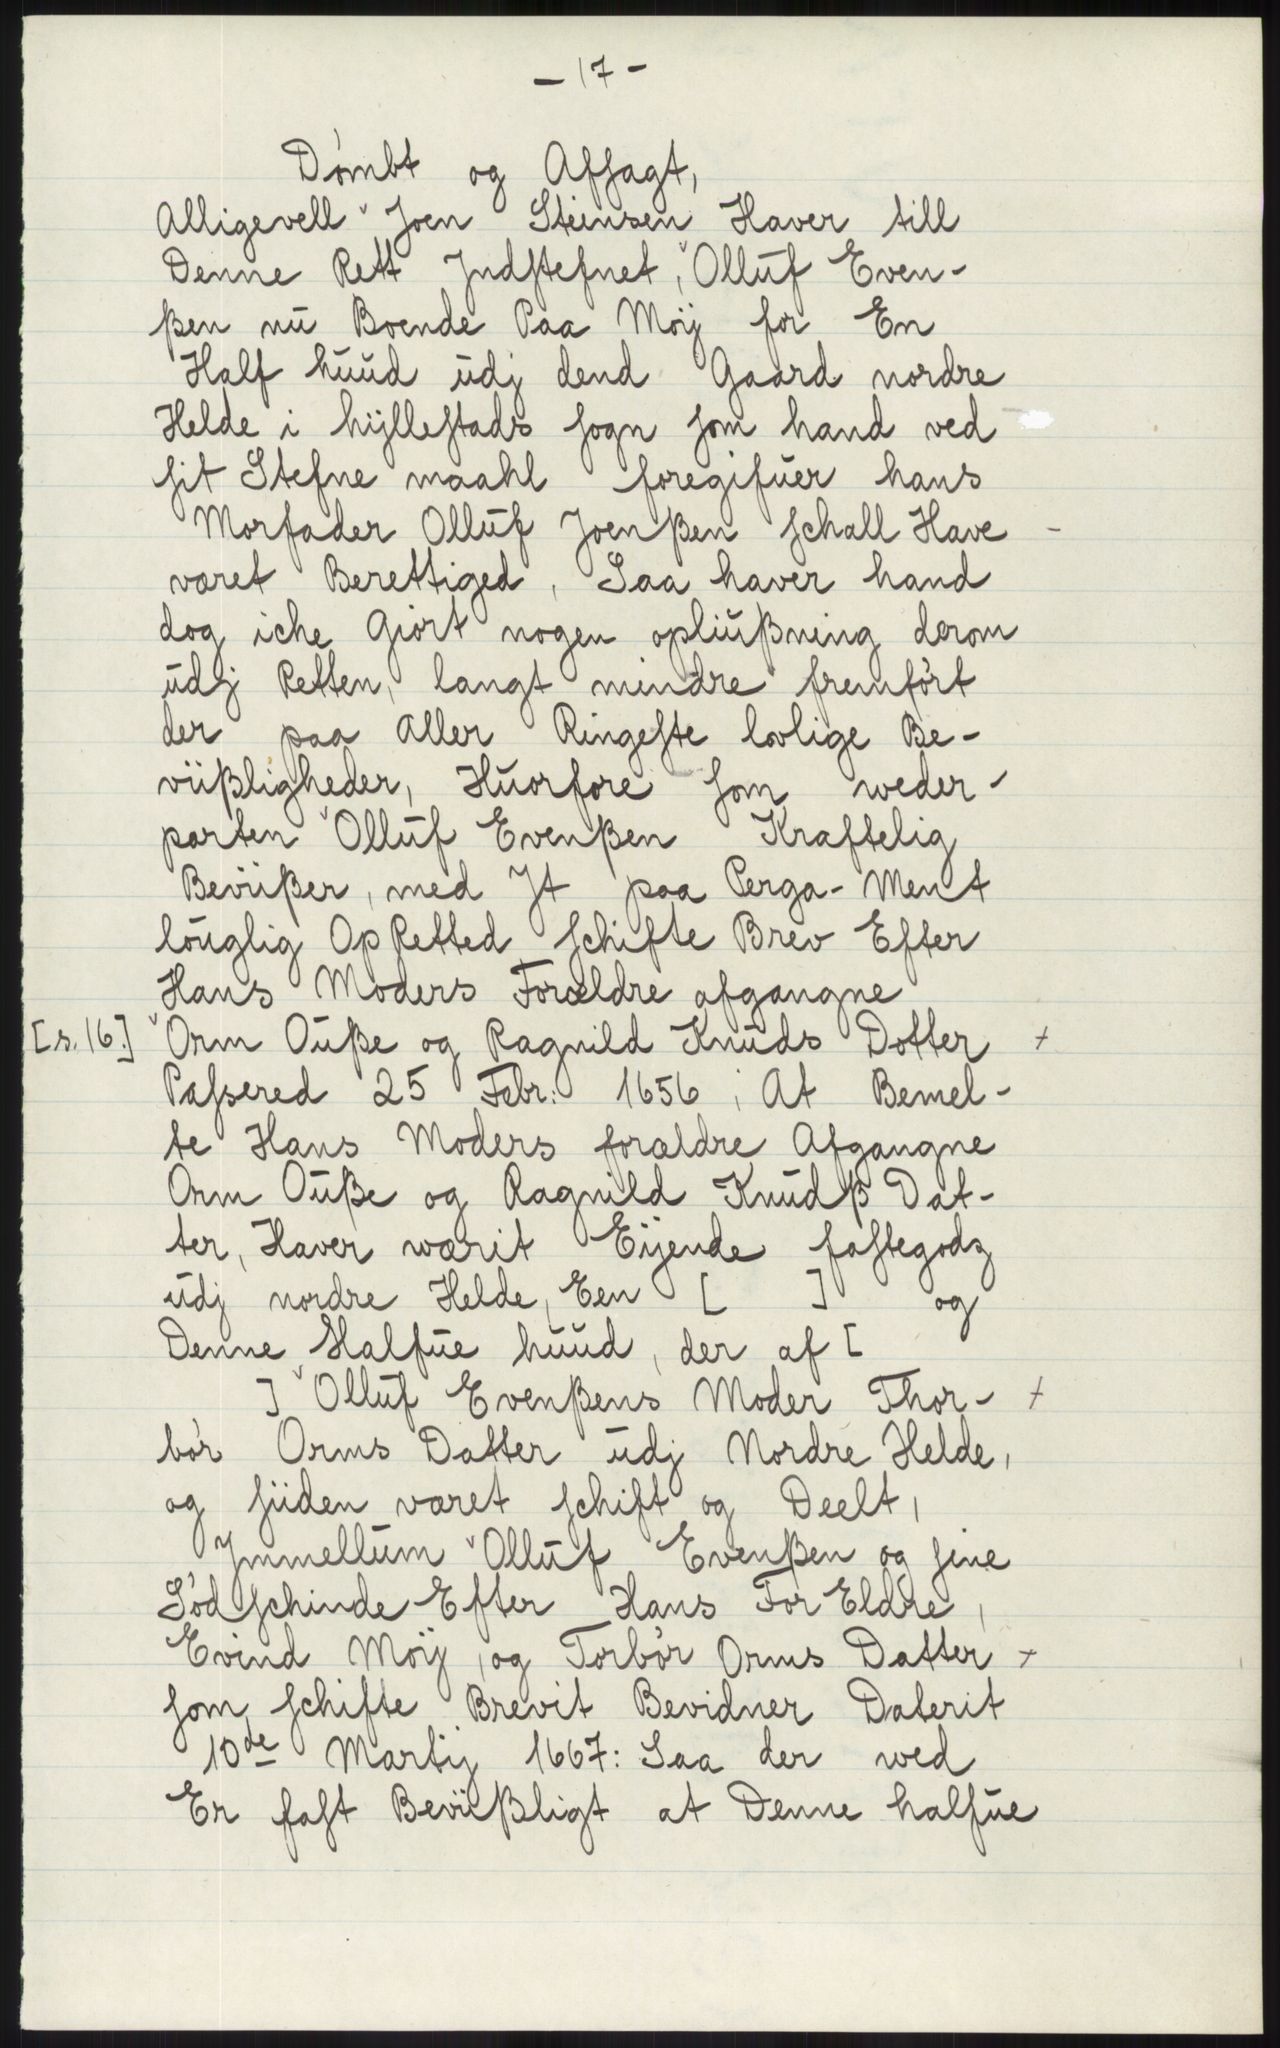 - 17 -
Dömbt og Afsagt,
Alligevell Joen Steinsen Haver till
Denne Rett Jndstefnet, Olluf Even-
ßen nu Boende Paa Möij for En
Half huud udj dend Gaard nordre
Helde i hÿllestads sogn som hand ved
sit Stefne maahl foregifuer hans
Morfader Olluf Joenßen schall Have
været Berettiged, Saa haver hand
dog iche Giört nogen opliußning derom
udj Retten, langt mindre fremfört
der paa Aller Ringeste lovlige Be-
viißligheder, Huorfore som weder-
parten Olluf Evenßen Kraftelig
Beviißer, med Jt paa Perga-Ment
löuglig OpRetted schifte Brev Efter
Hans Moders Forældre afgangne
[s. 16.] Orm Ouße og Ragnild Knuds Dotter +
Passered 25 Febr: 1656, At Bemel-
te Hans Moders forældre Afgangne
Orm Ouße og Ragnild Knudß Dat-
ter, Haver wærit Eijende fastegodz
udj nordre Helde, Een [ ] og
Denne Halfue huud, der af [
] Olluf Evenßens Moder Thor- +
bör Orms Datter udj Nordre Helde,
og siiden været schift og Deelt,
Jmmellum Olluf Evenßen og sine
Södschinde Efter Hans ForEldre,
Evind Möij, og Torbör Orms Datter +
som schifte Brevit Bevidner Daterit
10de Martij 1667: Saa der wed
Er fast Beviißligt at Denne halfue